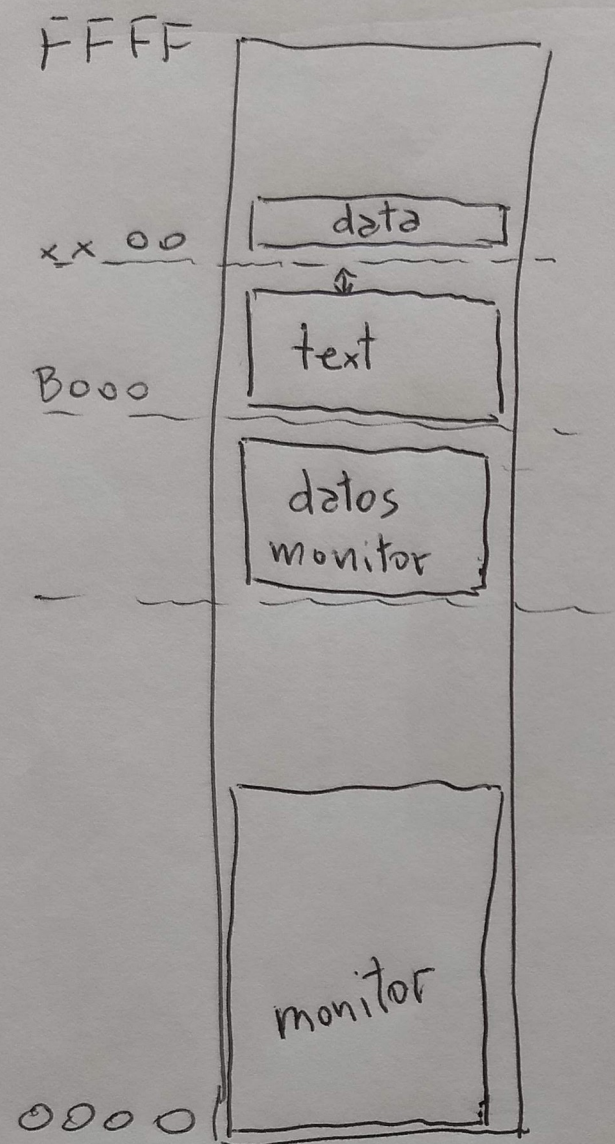 FFFF
data
xx00
text
B000
datos
monitor
monitor
0000